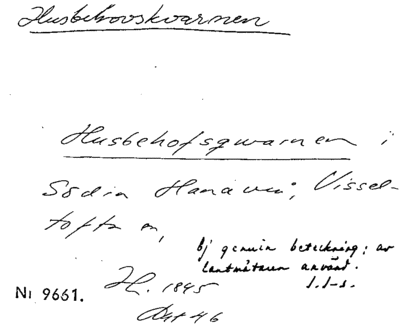 Husbehovskvarnen
Husbehofsqwarnen i
Södra Hanaven, Vissel-
tofta sn,
Ej genuin beteckning; av
lantmätaren använd.
I.I-s.
H. 1845
Akt 46
Nr 9661.